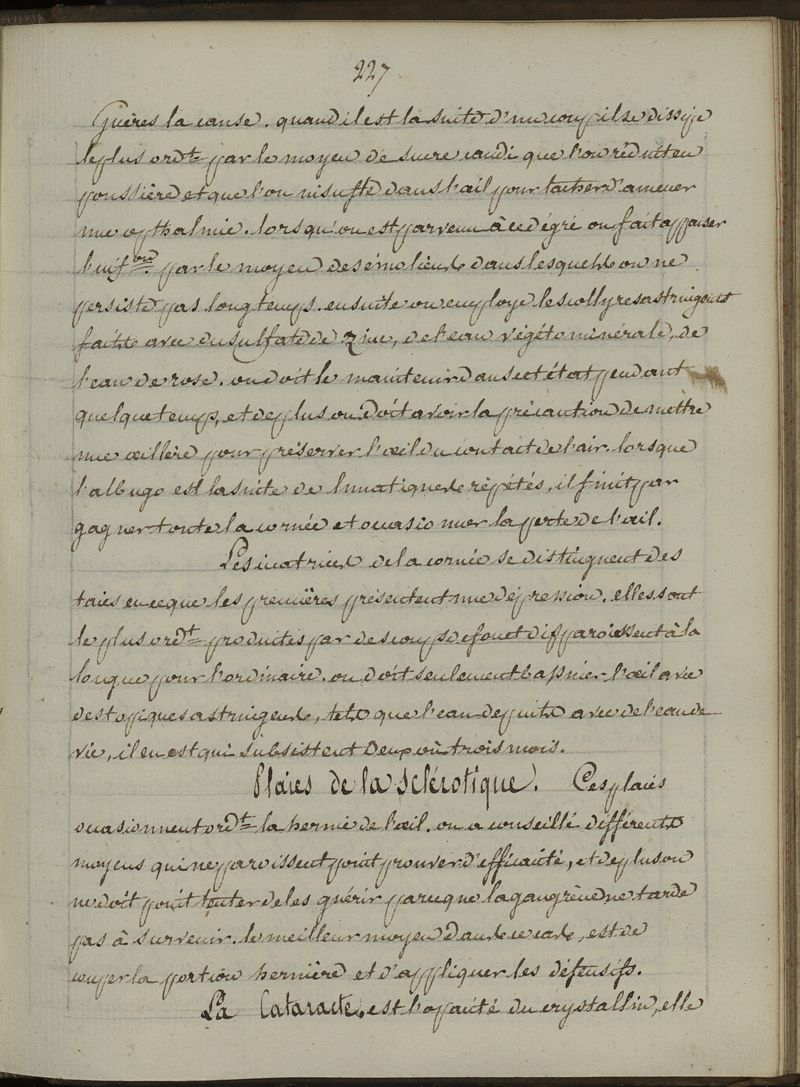 227
Guères la cause. quand il est la suite d'un coup il se dissipe
le plus ordt par le moyen de sucre candi que l'on réduit en
poussière et que l'on insufle dans l'œil pour tacher d'amener
une opthalmie. lorsqu'on est parvenu à ce dégré on fait appaiser
l'infon par le moyen des émolients dans lesquels on ne
persiste pas longtemps. ensuite on employe les collyres astringents
faits avec du sulfate de zinc, de l'eau végéto minérale, de
l'eau de rose. on doit le maintenir dans cet état pendant
quelque temps, et de plus on doit avoir la précaution de mettre
une œillère pour préserver l'œil du contact de l'air. lorsque
l'albugo est la suite de lunatiques répétés, il finit par
gagner toute la cornée et occasionner la perte de l'œil.
Les cicatrices de la cornée se distinguent des
taies en ce que les premières présentent une dépression. elles sont
le plus ordt produites par des coups de fouet disparoissent à la
longue pour l'ordinaire. on doit seulement bassiner l'œil avec
des topiques astringents, tels que l'eau de puits avec de l'eau de
vie, il en est qui subsistent deux où trois mois.
Plaies de la Sclérotique. Ces plaies
occasionnent ordt la hernie de l'œil. on a conseillé différents
moyens qui ne paroissent point prouver d'efficacité, et de plus on
ne doit point tenter de les guérir parce que la gangrène ne tarde
pas à survenir. le meilleur moyen dans ce cas, est de
couper la portion hernière et d'appliquer les défensifs.
La Cataracte, est l'opacité du crystallin, elle